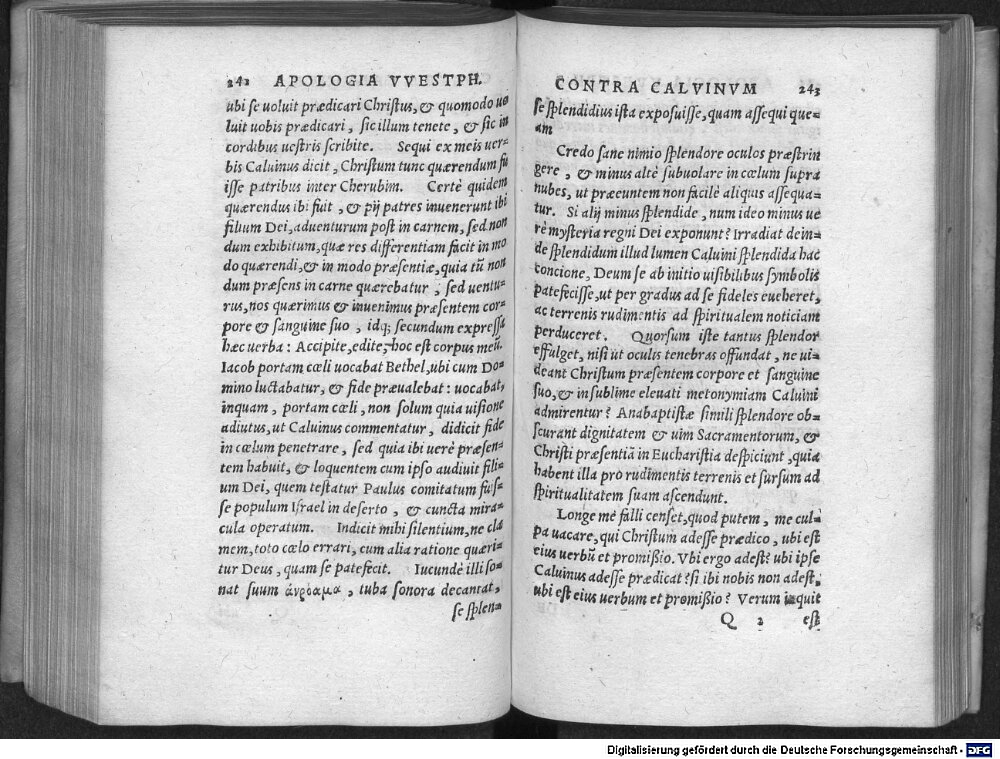 242 APOLOGIA VVESTPH.
ubi se uoluit prædicari Christus, & quomodo uo
luit uobis prædicari, sic illum tenete, & sic in
cordibus uestris scribite. Sequi ex meis uer=
bis Caluinus dicit, Christum tunc quærendum fu
isse patribus inter Cherubim. Certè quidem
quærendus ibi fuit, & pij patres inuenerunt ibi
filium Dei, aduenturum post in carnem, sed non
dum exhibitum, quæ res differentiam facit in mo
do quærendi, & in modo præsentiæ, quia tũ non
dum præsens in carne quærebatur, sed uentu=
rus, nos quærimus & inuenimus præsentem cor=
pore & sanguine suo, idq; secundum expressa
hæc uerba: Accipite, edite, hoc est corpus meũ.
Iacob portam cœli uocabat Bethel, ubi cum Do=
mino luctabatur, & fide præualebat: uocabat,
inquam, portam cœli, non solum quia uisione
adiutus, ut Caluinus commentatur, didicit fide
in cœlum penetrare, sed quia ibi uerè præsen=
tem habuit, & loquentem cum ipso audiuit fili=
um Dei, quem testatur Paulus comitatum fuis=
se populum Israel in deserto, & cuncta mira=
cula operatum. Indicit mihi silentium, ne cla
mem, toto cœlo errari, cum alia ratione quæri=
tur Deus, quam se patefecit. Iucundè illi so=
nat suum ἀκρόαμα, tuba sonora decantat,
se splen=
CONTRA CALVINVM 243
se splendidius ista exposuisse, quam assequi que=
am
Credo sane nimio splendore oculos præstrin
gere, & minus altè subuolare in cœlum supra
nubes, ut præeuntem non facilè aliquis assequa=
tur. Si alij minus splendide, num ideo minus ue
rè mysteria regni Dei exponunt? Irradiat dein=
de splendidum illud lumen Caluini splendida hac
concione, Deum se ab initio uisibilibus symbolis
patefecisse, ut per gradus ad se fideles eueheret,
ac terrenis rudimentis ad spiritualem noticiam
perduceret. Quorsum iste tantus splendor
effulget, nisi ut oculis tenebras offundat, ne ui=
deant Christum præsentem corpore et sanguine
suo, & in sublime eleuati metonymiam Caluini
admirentur? Anabaptistæ simili splendore ob=
scurant dignitatem & uim Sacramentorum, &
Christi præsentiã in Eucharistia despiciunt, quia
habent illa pro rudimentis terrenis et sursum ad
spiritualitatem suam ascendunt.
Longe me falli censet, quod putem, me cul=
pa uacare, qui Christum adesse prædico, ubi est
eius uerbũ et promißio. Vbi ergo adest? ubi ipse
Caluinus adesse prædicat? si ibi nobis non adest,
ubi est eius uerbum et promißio? Verum inquit
Q 2 est
Digitalisierung gefördert durch die Deutsche Forschungsgemeinschaft - DFG